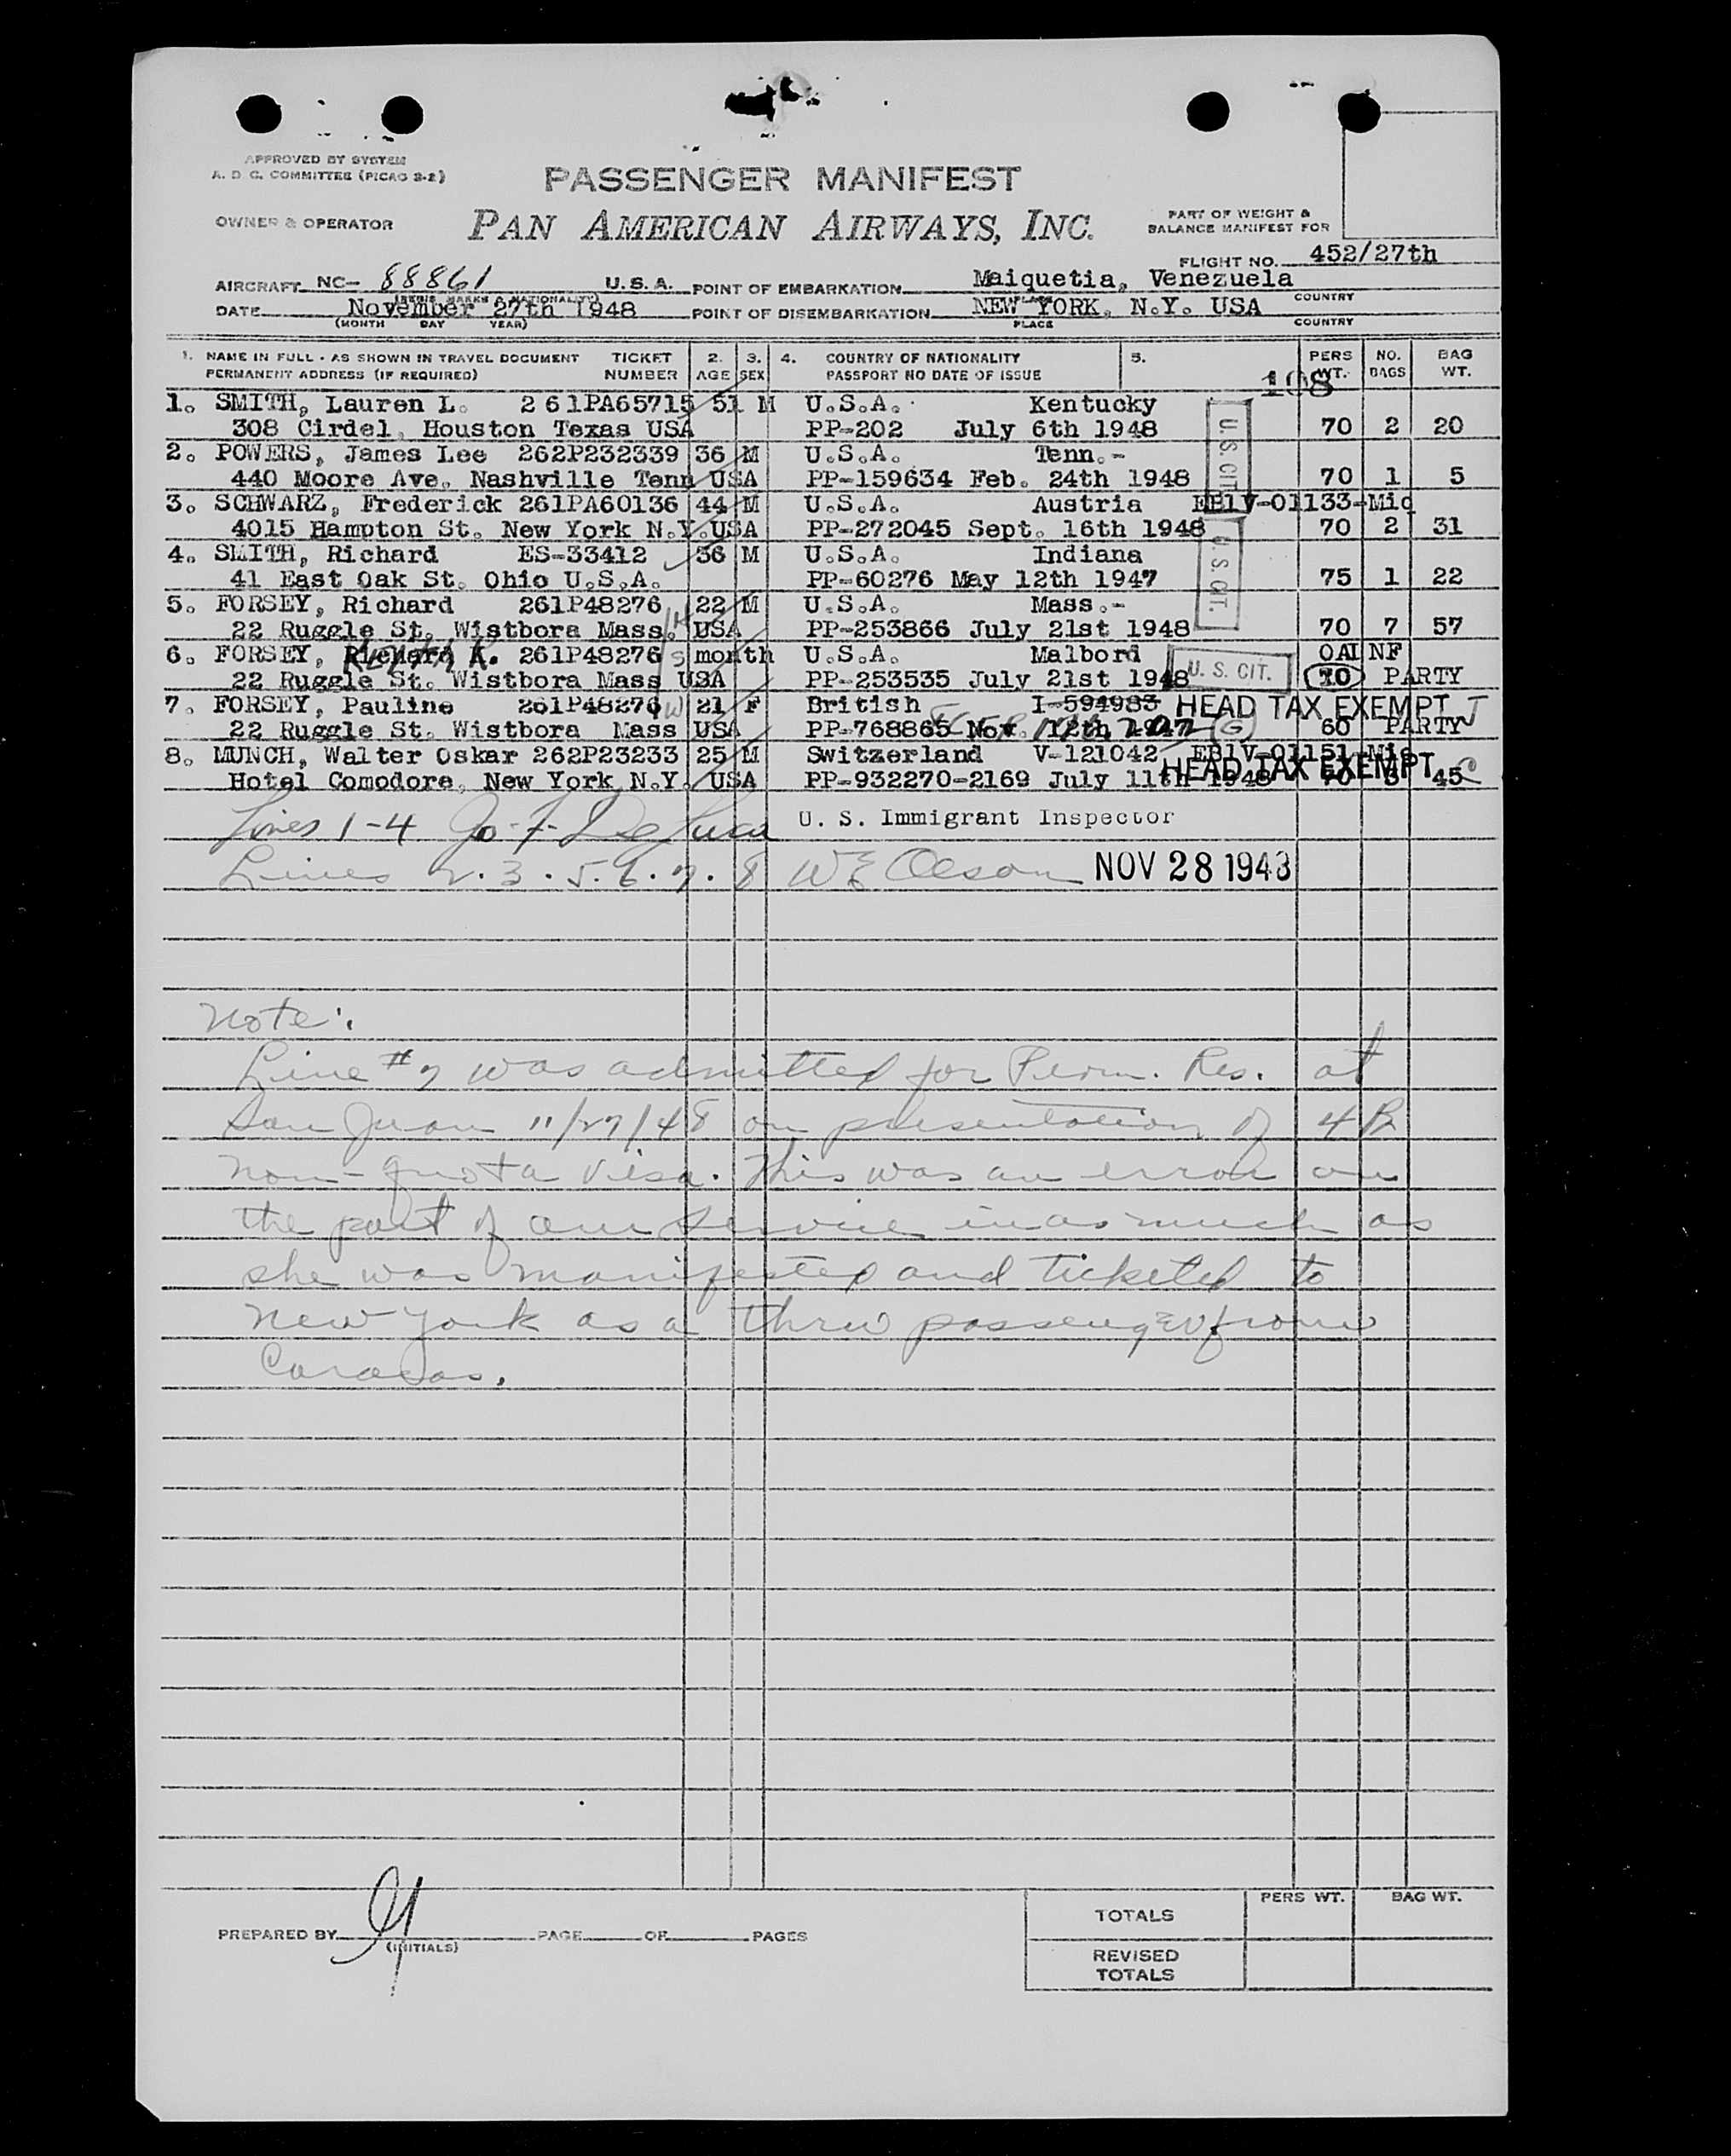 APPROVED BY SYSTEM
A. D. C. COMMITTEE (PICAO 3-2)
PASSENGER MANIFEST
OWNER & OPERATOR
PAN AMERICAN AIRWAYS, INC.
PART OF WEIGHT &
BALANCE MANIFEST FOR
FLIGHT NO. 452/27th
AIRCRAFT NC- 88861 U.S.A. POINT OF EMBARKATION Maiquetia, Venezuela
(REGIS. MARKS & NATIONALITY) PLACE COUNTRY
DATE November 27th 1948 POINT OF DISEMBARKATION NEW YORK, N.Y. USA
(MONTH DAY YEAR) PLACE COUNTRY
1. NAME IN FULL - AS SHOWN IN TRAVEL DOCUMENT TICKET 2. 3. 4. COUNTRY OF NATIONALITY 5. PERS NO. BAG
PERMANENT ADDRESS (IF REQUIRED) NUMBER AGE SEX PASSPORT NO DATE OF ISSUE WT. BAGS WT.
108
1. SMITH, Lauren L. 261PA65715 51 M U.S.A. Kentucky
308 Cirdel, Houston Texas USA PP-202 July 6th 1948 70 2 20
U.S. CIT.
2. POWERS, James Lee 262P232339 36 M U.S.A. Tenn.-
440 Moore Ave, Nashville Tenn USA PP-159634 Feb. 24th 1948 70 1 5
3. SCHWARZ, Frederick 261PA60136 44 M U.S.A. Austria EB1V-01133-Miq
4015 Hampton St. New York N.Y.USA PP-272045 Sept. 16th 1948 70 2 31
U.S. CIT.
4. SMITH, Richard ES-33412 36 M U.S.A. Indiana
41 East Oak St. Ohio U.S.A. PP-60276 May 12th 1947 75 1 22
5. FORSEY, Richard 261P48276 H 22 M U.S.A. Mass.-
22 Ruggle St. Wistbora Mass. USA PP-253866 July 21st 1948 70 7 57
6. FORSEY, K. 261P48276 S month U.S.A. Malbord OAI NF
22 Ruggle St. Wistbora Mass USA PP-253535 July 21st 1948 U. S. CIT. 10 PARTY
7. FORSEY, Pauline 261P48276 W 21 F British I-594983 HEAD TAX EXEMPT
22 Ruggle St. Wistbora Mass USA PP-768865 Nov. 12th 1947 60 PARTY
8. MUNCH, Walter Oskar 262P23233 25 M Switzerland V-121042 EB1V-01151-Miq
Hotel Comodore, New York N.Y. USA PP-932270-2169 July 11th 1948 HEAD TAX EXEMPT 70 3 45
Lines 1-4 U. S. Immigrant Inspector
Lines 2.3.5.6.7.8 WE Olson NOV 28 1948
Note:
Line #7 was admitted for Perm. Res. at
San Juan 11/27/48 on presentation of 4B
non-quota visa. This was an error on
the part of our service inasmuch as
she was manifested and ticketed to
New York as a thru passenger from
Caracas.
PERS WT. BAG WT.
TOTALS
PREPARED BY (INITIALS) PAGE OF PAGES
REVISED
TOTALS